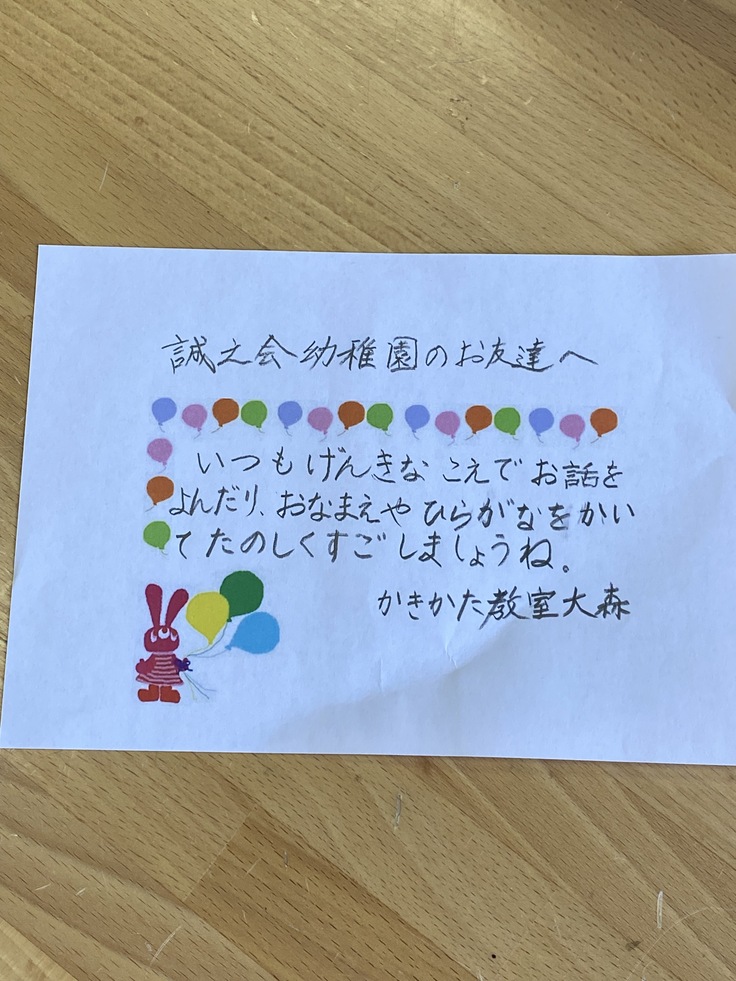 誠之会幼稚園のお友達へ
いつもげんきなこえでお話を
よんだり、おなまえやひらがなをかい
てたのしくすごしましょうね。
かきかた教室大森